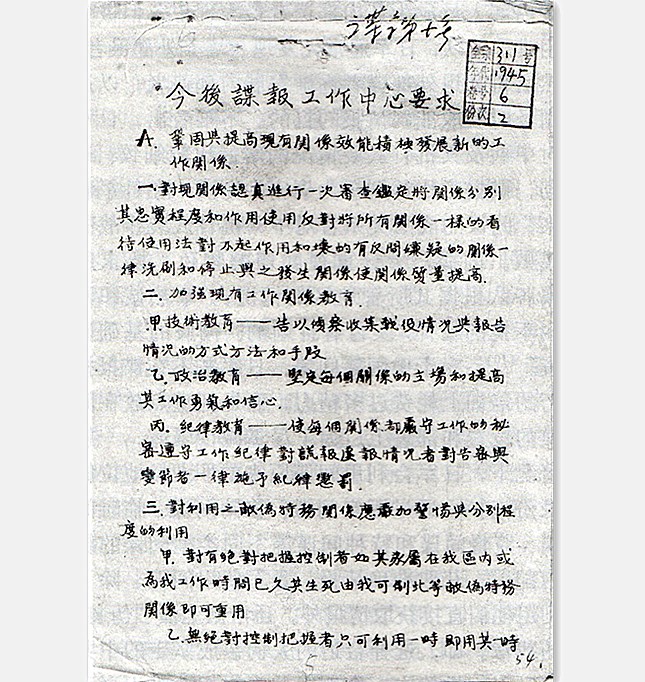 今後諜報工作中心要求
全宗 311 号
年代 1945
卷号 6
份次 2
A. 鞏固與提高現有關係效能積極發展新的工
作關係.
一.對現関係認真進行一次審查鑑定將関係分别
其忠實程度和作用使用反對將所有関係一樣的看
待使用法對不起作用和壞的有反間嫌疑的関係一
律洗刷和停止與之發生関係使関係質量提高.
二.加强現有工作関係教育.
甲.技術教育——告以偵察收集敵伪情况與報告
情况的方式方法和手段
乙.政治教育——堅定每個關係的立場和提高
其工作勇氣和信心.
丙.紀律教育——使每個関係都嚴守工作的秘
密遵守工作紀律對謊報遲報情况者對告密與
變節者一律施予紀律懲罰.
三.對利用之敵偽特務関係應嚴加警惕與分别程
度的利用
甲.對有絕對把握控制者如其家屬在我區内或
為我工作時間已久其生死由我可制此等敵偽特務
関係即可重用
乙.無絕對控制把握者只可利用一時即用其一時
5
54.